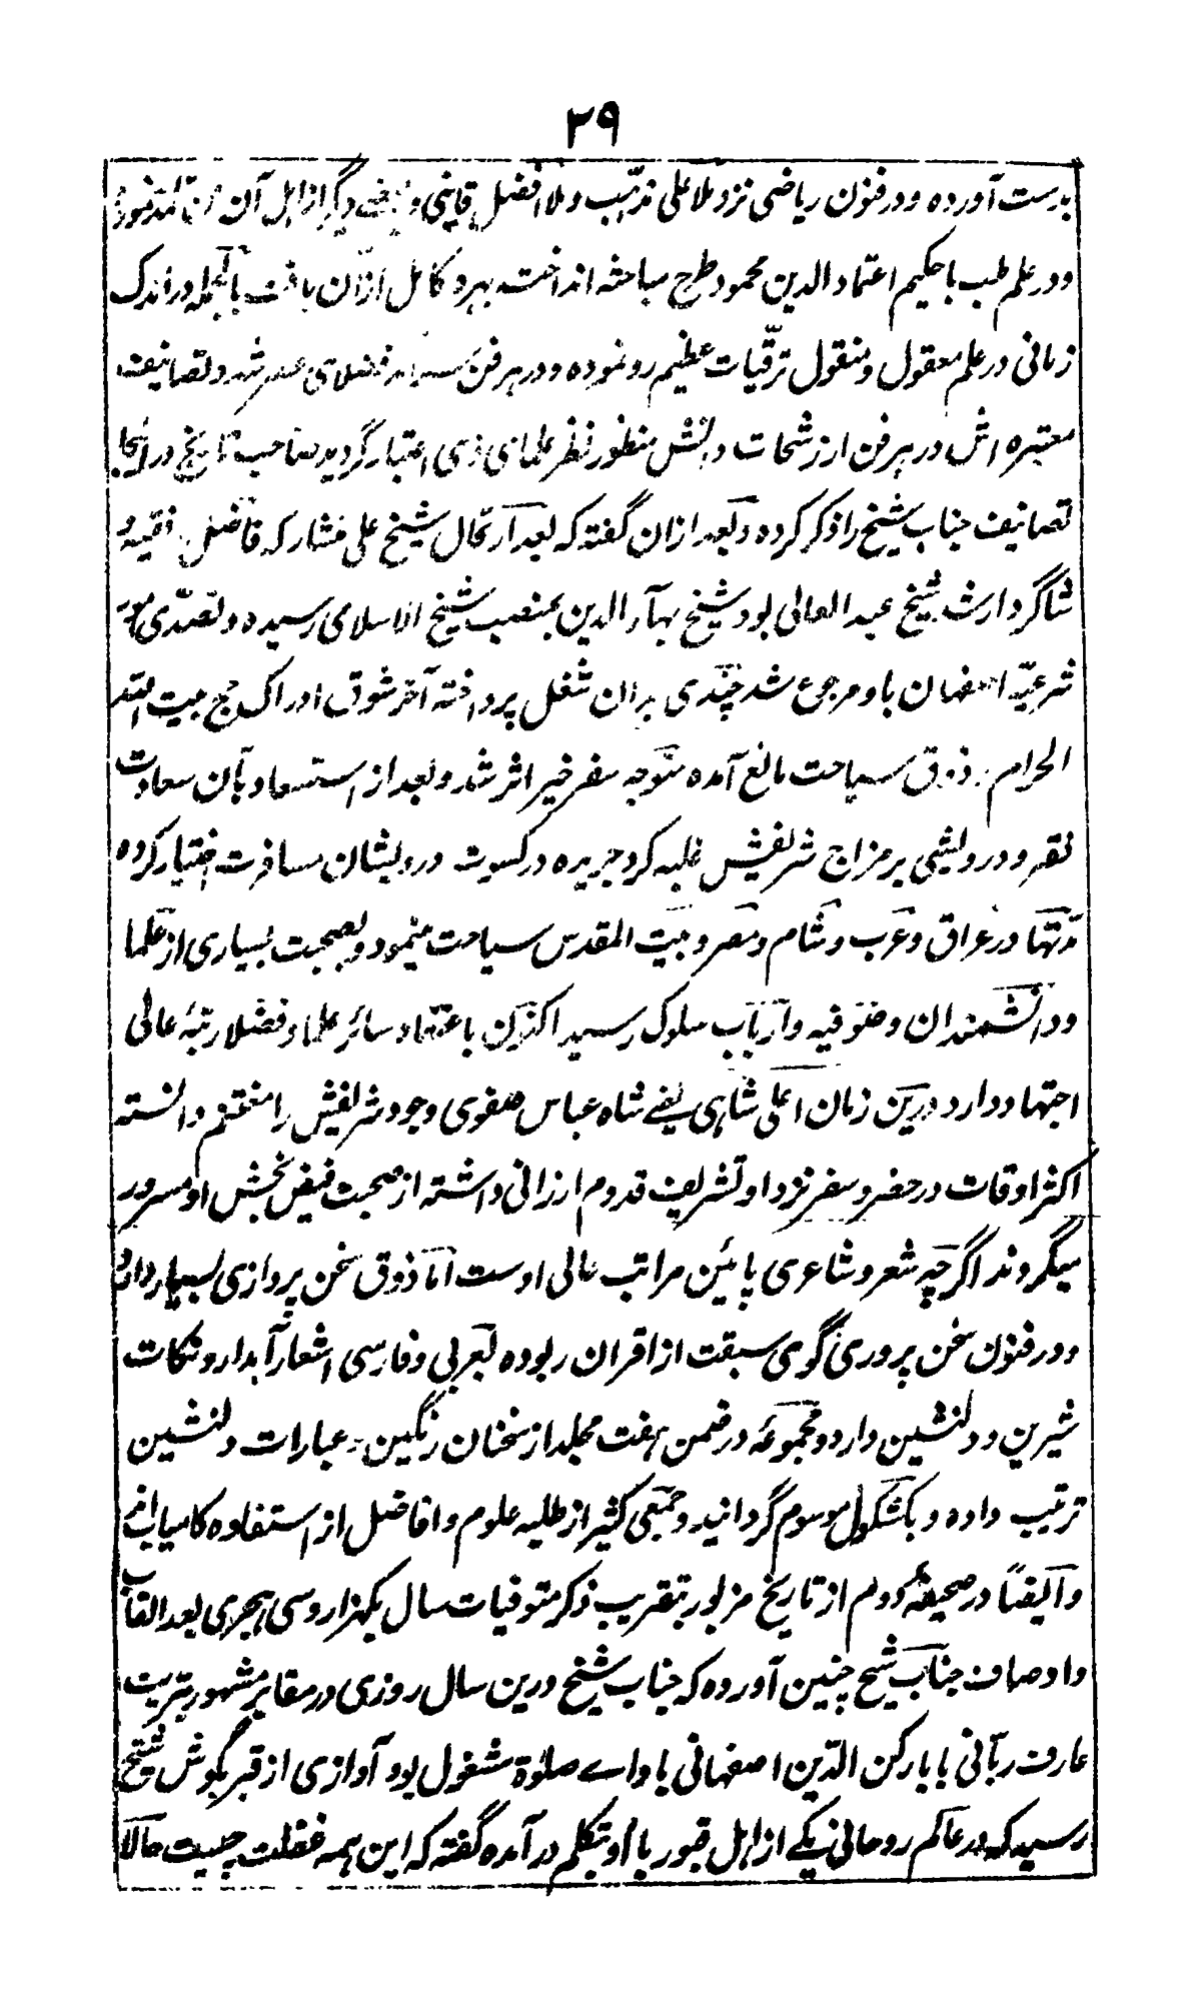 ۲۹
بدست آورده و در فنون ریاضی نزد ملا علی مذهب و ملا افضل قاینی و بعضی دیگر از اهل آن فن تلمذ نموده
و در علم طب با حکیم اعتماد الدین محمود طرح مباحثه انداخته بهره کامل از آن یافت بالجمله در اندک
زمانی در علم معقول و منقول ترقّیات عظیم رو نموده و در هر فن سرآمد فضلای عصر شد و تصانیف
معتبره اش در هر فن از رشحات دانش منظور نظر علمای ذی اعتبار گردید صاحب تاریخ در اینجا
تصانیف جناب شیخ را ذکر کرده و بعد ازان گفته که بعد ارتحال شیخ علی منشار که فاضل فقیه و
شاگرد ارشد شیخ عبد العالی بود شیخ بهاء الدین بمنصب شیخ الاسلامی رسیده و تصدّی امور
شرعیّه اصفهان باو مرجوع شد چندی بدان شغل پرداخته آخر شوق ادراک حج بیت الله
الحرام و ذوق سیاحت مانع آمده متوجه سفر خیر اثر شد و بعد از استسعاد بآن سعادت
فقر و درویشی بر مزاج شریفش غلبه کرد جریده در کسوت درویشان مسافرت اختیار کرده
مدتها در عراق و عرب و شام و مصر و بیت المقدس سیاحت مینمود و بصحبت بسیاری از علما
و دانشمندان و صوفیه و ارباب سلوک رسید اکنون باعتقاد سائر علما و فضلا رتبهٔ عالی
اجتهاد دارد درین زمان اعلی شاهی یعنے شاه عباس صفوی وجود شریفش را مغتنم دانسته
اکثر اوقات در حضر و سفر نزد او تشریف قدوم ارزانی داشته از صحبت فیض بخش او مسرور
میگروند اگرچه شعر و شاعری پائین مراتب عالی اوست اما ذوق سخن پردازی بسیار دارد
و در فنون سخن پروری گوی سبقت از اقران ربوده بعربی و فارسی اشعار آبدار و نکات
شیرین و دلنشین دارد و مجموعهٔ در ضمن هفت مجلد از سخنان رنگین و عبارات دلنشین
ترتیب داده و بکشکول موسوم گردانیده و جمعی کثیر از طلبه علوم و افاضل از استفاده کامیاب اند
و ایضًا در صحیفهٔ دوم از تاریخ مزبور بتقریب ذکر متوفیات سال یکهزار و سی هجری بعد القاب
و اوصاف جناب شیخ چنین آورده که جناب شیخ درین سال روزی در مقابر مشهور بتربت
عارف ربّانی بابا رکن الدّین اصفهانی با داے صلوة مشغول بود آوازی از قبر بگوش شیخ
رسید که در عالم روحانی یکے از اهل قبور با او بتکلم در آمده گفته که این همه غفلت چیست حالا